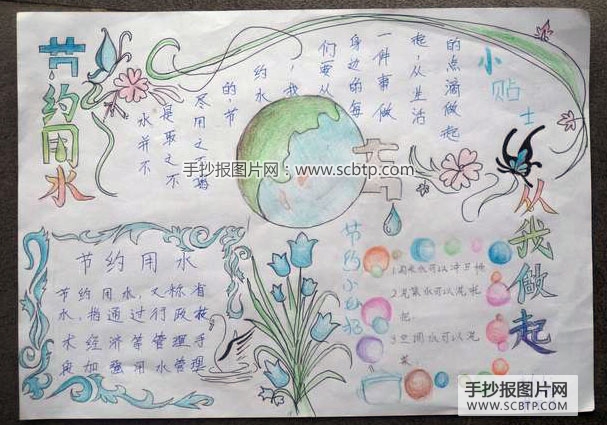 节约用水
水并不
是取之不
尽用之不竭
的,节
约水
,我
们要从
身边的每
一件事做
起,从生活
的点滴做起
小贴士
从我做起
手抄报图片网:www.scbtp.com
节约用水
节约用水,又称省
水,指通过行政技
术经济等管理手
段加强用水管理
节约小
1.淘米水可以冲马桶
2.洗菜水可以洗拖
把.
3.空调水可以浇
菜.
手抄报图片网
WWW.SCBTP.COM